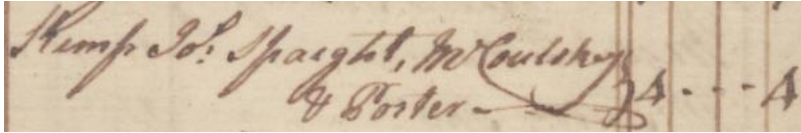 Kemp Jos. Spaight, McCoulskey
& Porter - 4 - - - 4